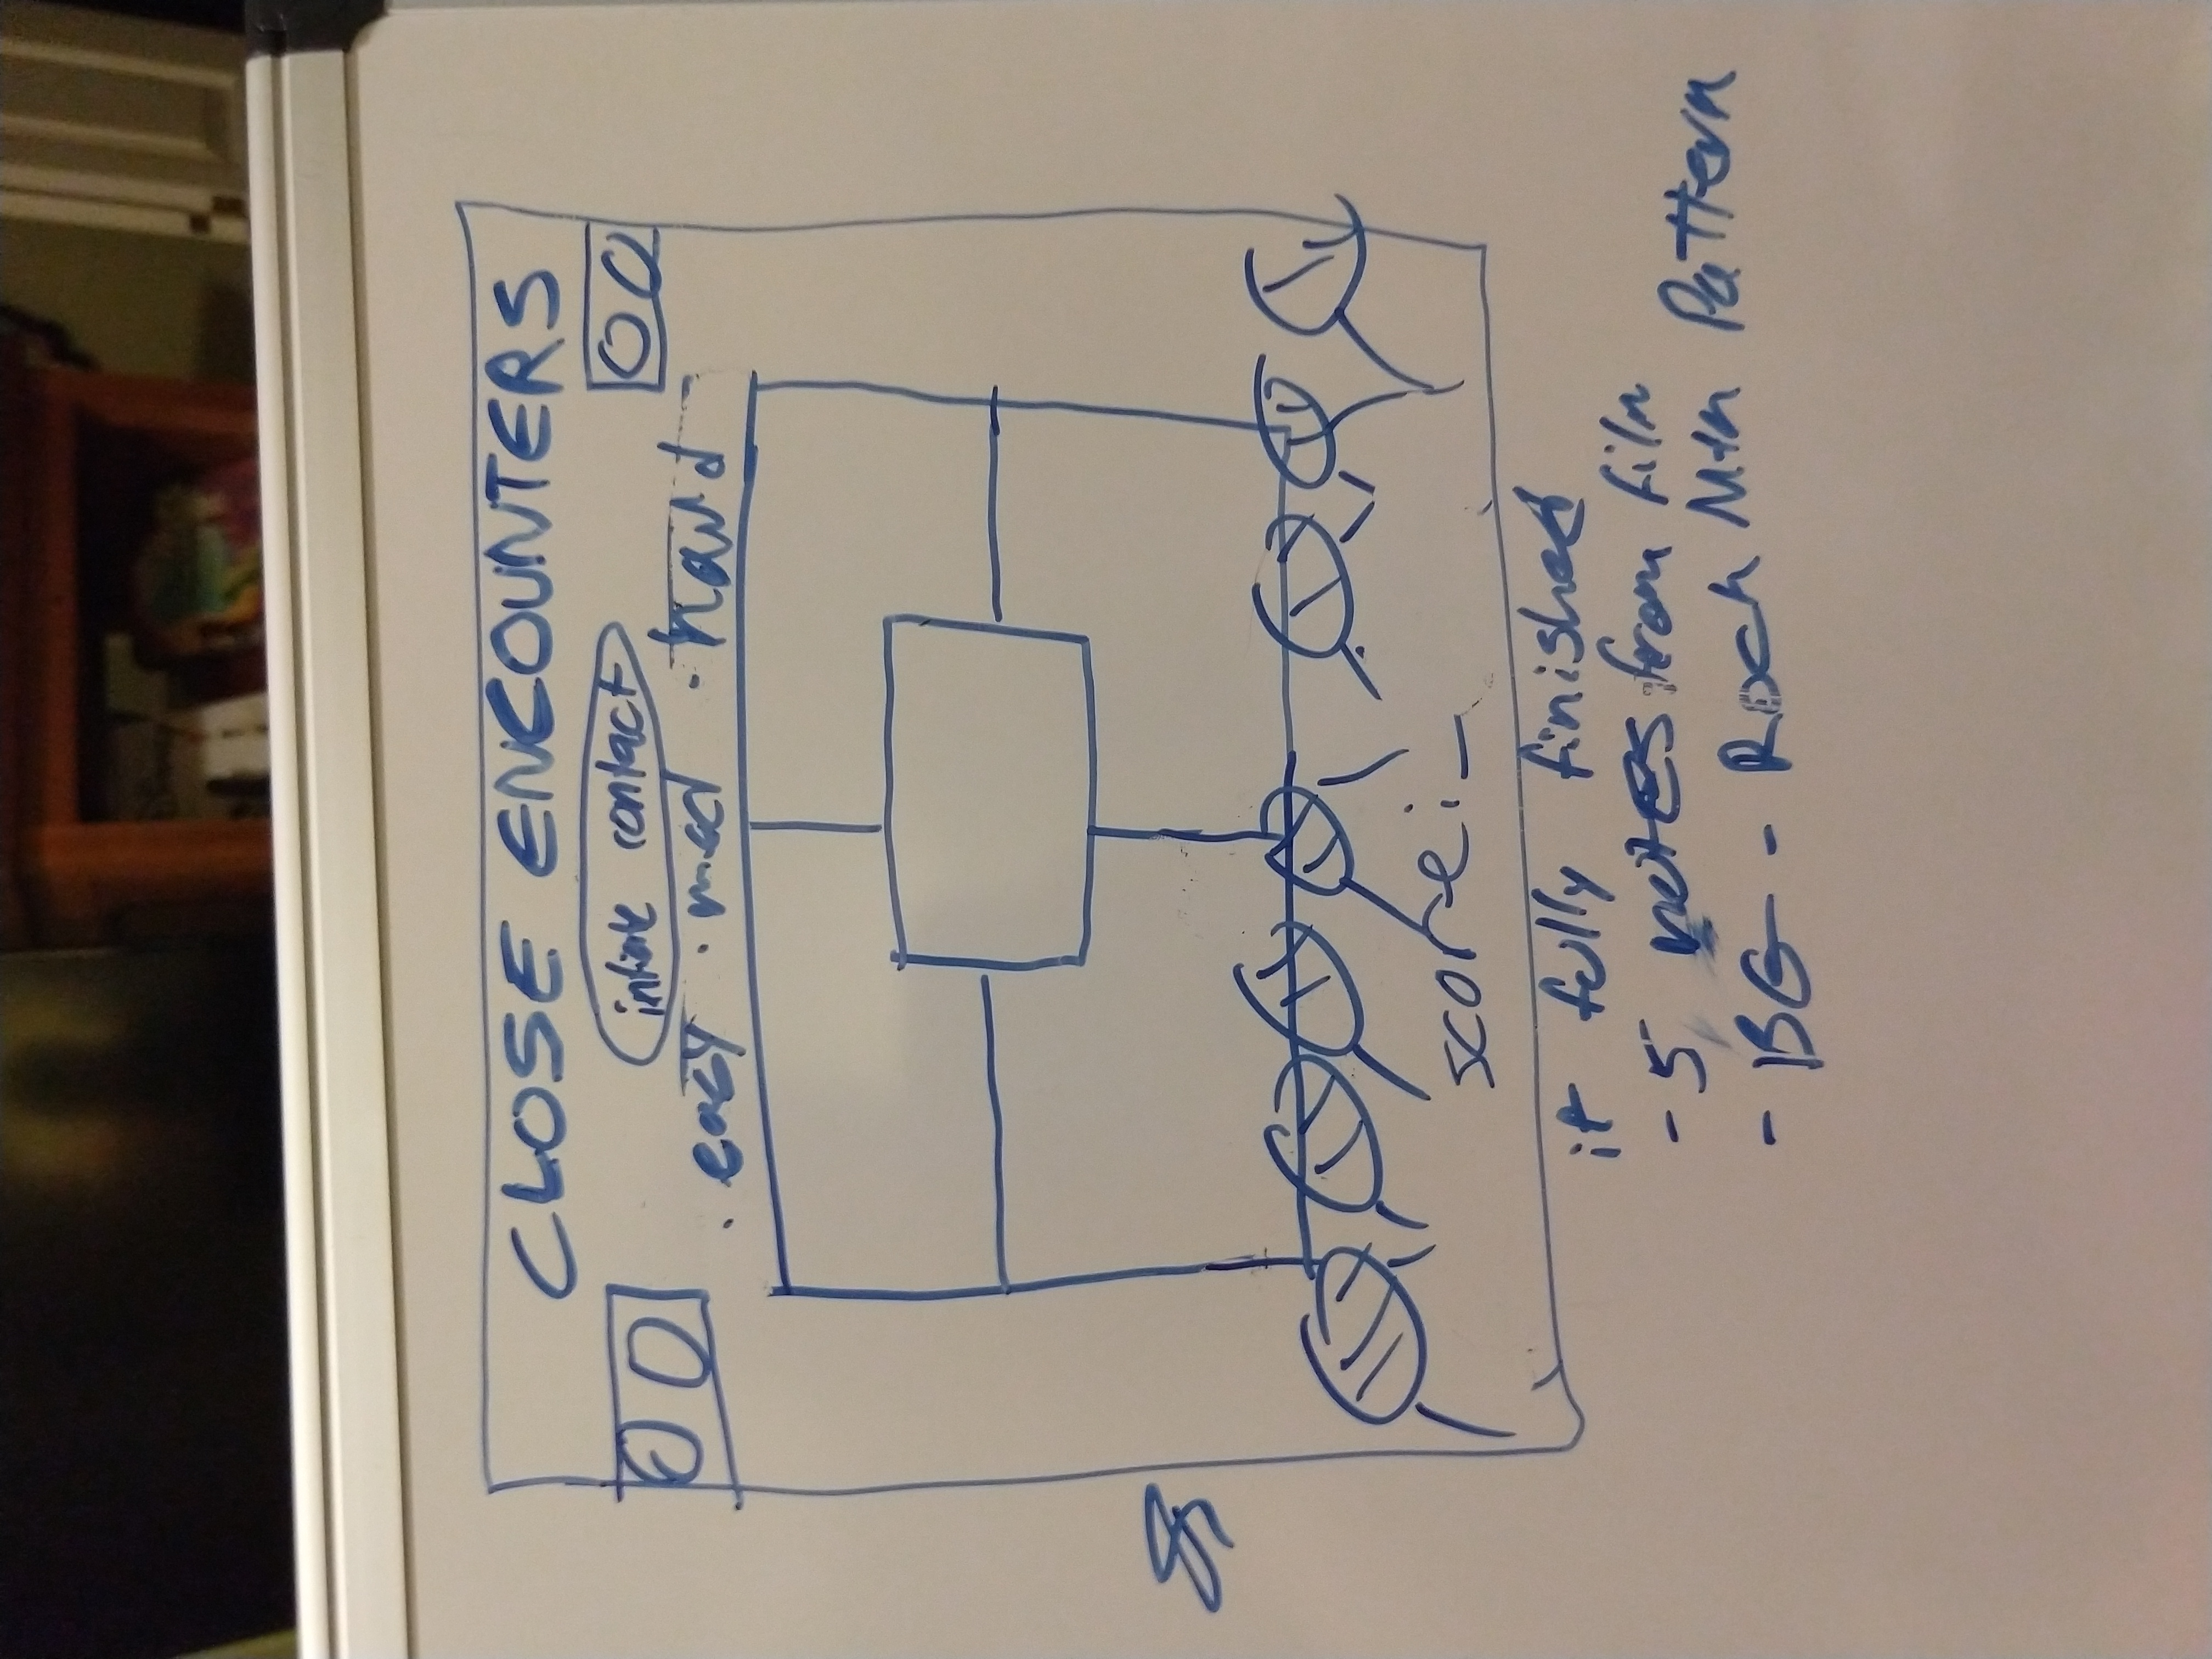 CLOSE ENCOUNTERS
intiate contact
. easy . med . hard
score: _
if fully finished
- 5 notes from film
- BG - Rock Mtn Pattern
Disney